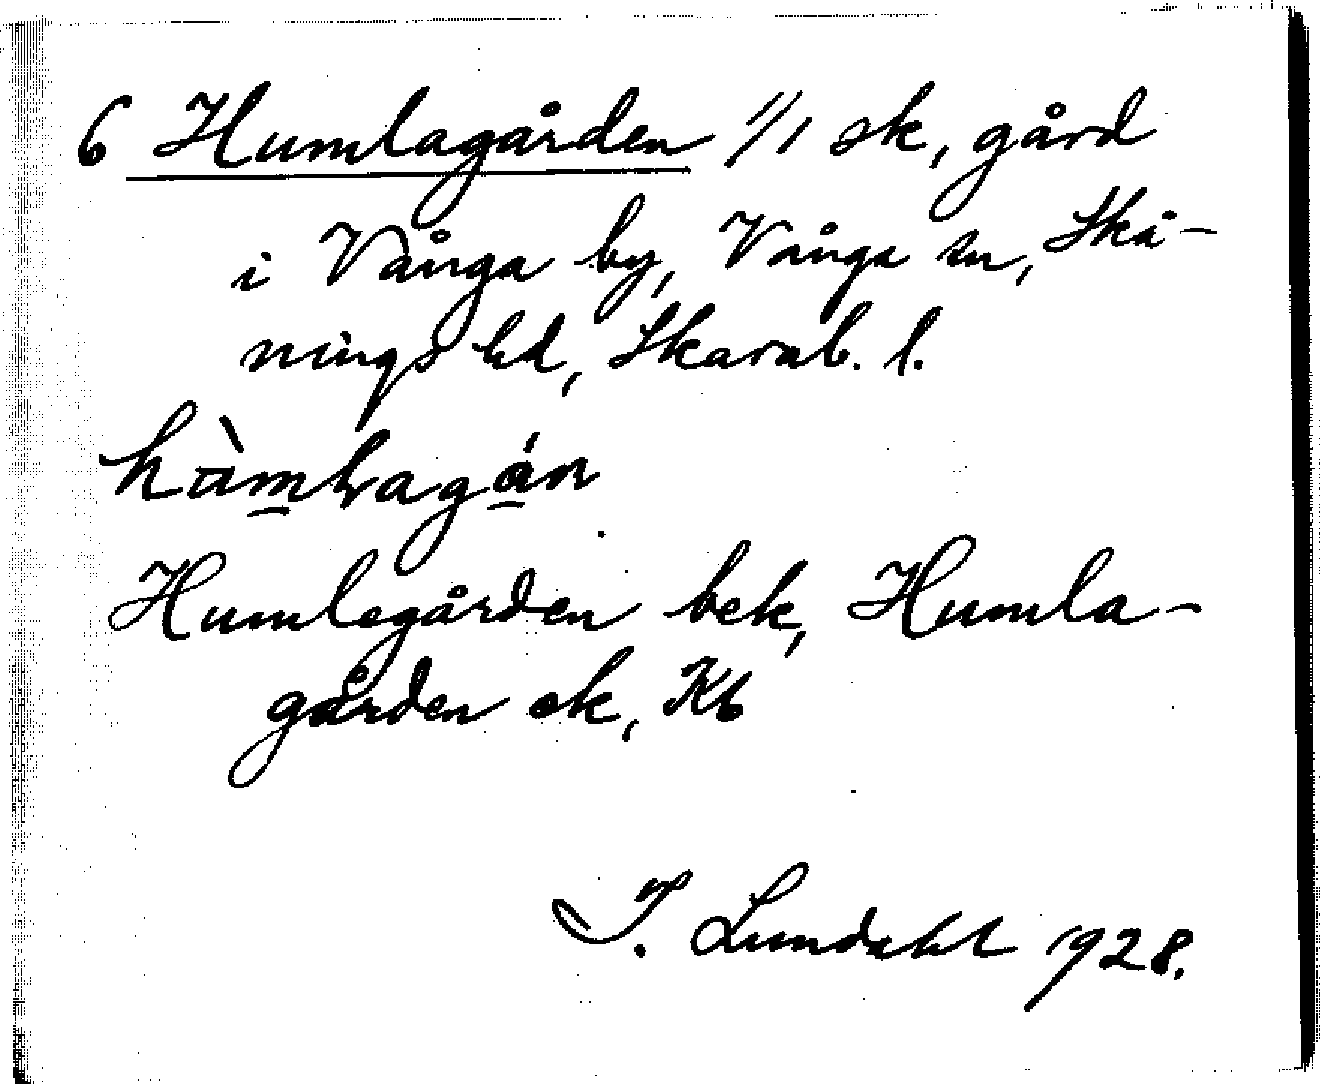 6 Humlagården 1/1 sk, gård
i Vånga by, Vånga sn, Skå-
nings hd, Skarab. l.
Humlegården bek, Humla-
gården sk, Kb
I. Lundahl 1928.